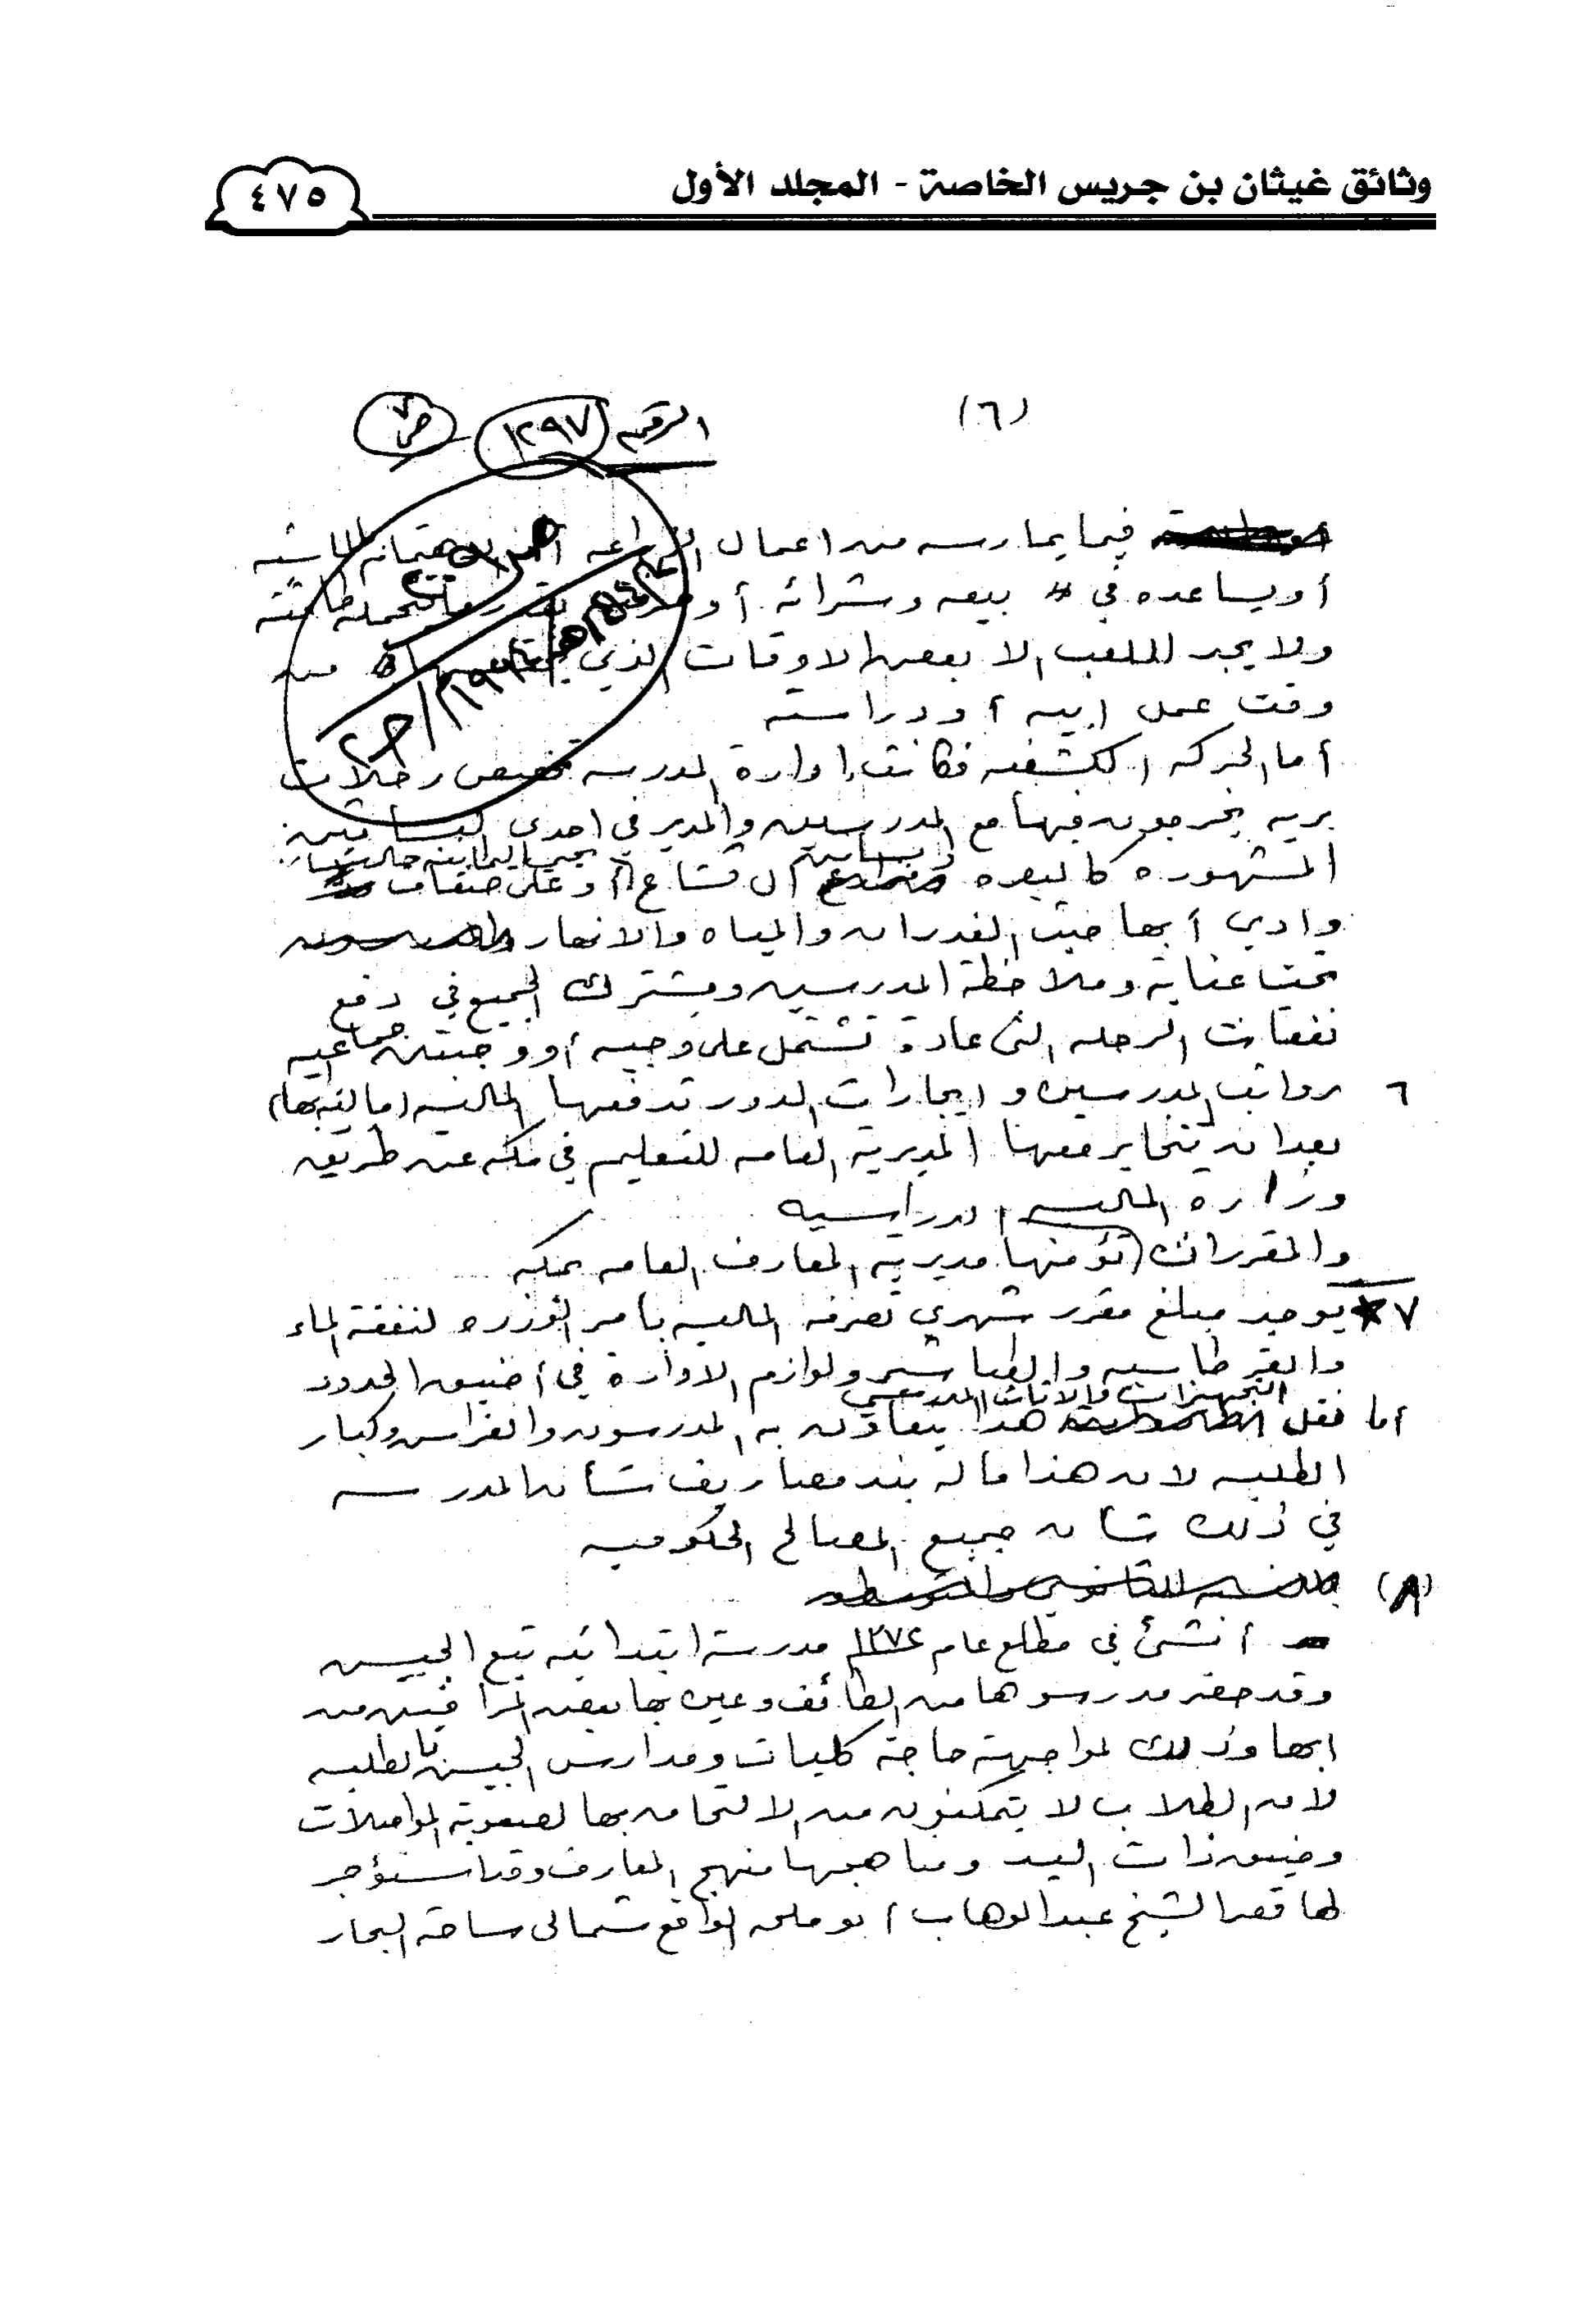 وثائق غيثان بن جريس الخاصة - المجلد الأول
٤٧٥
(٦)
الرقم ١٢٩٧ ص٧
فيما يمارسه من اعمال الزراعه
أو يساعده في بيعه وشرائه أو
ولا يجد للعب الا بعض الاوقات الذي من
وقت عمل ابيه أو دراسته
أما الحركه الكشفيه فكانت إدارة المدرسه تخصص رحلات
بريه يخرجون فيها مع المدرسين والمدير في احدى البساتين
المشهوره كالبعره وبساتين ال قشاع أو على ضفاف
وادي أبها حيث الغدران والمياه والانهار
تحت عناية وملاحظة المدرسين ويشترك الجميع في دفع
نفقات الرحله التي عادة تشتمل على وجبه أو وجبتين جماعيه
٦ رواتب المدرسين وايجارات الدور تدفعها الماليه (مالية ابها)
بعد ان يتخابر معها المديريه العامه للتعليم في مكه عن طريق
وزاره الماليه
والمقررات الدراسيه تؤمنها مديرية المعارف العامه بمكه
٧ يوجد مبلغ مقرر شهري تصرفه الماليه بامر الوزره لنفقة الماء
والقرطاسيه والطباشير ولوازم الادارة في أضيق الحدود
أما نقل التجهيزات والاثاث المدرسي هذا يتعاون به المدرسون والفراس وكبار
الطلبه لان هذا ماله بند مصاريف شأن المدرسه
في ذلك شأن جميع المصالح الحكوميه
(٨)
أنشئ في مطلع عام ١٣٧٤ مدرسة ابتدائيه تتبع الجيش
وقد حضر مدرسوها من الطائف وعين بها بعض المراقبين من
ابها وذلك لمواجهة حاجة كليات ومدارس الجيش بالطلبه
لان الطلاب لا يتمكنون من الالتحاق بها لصعوبة المواصلات
وضيق ذات اليد ومناهجها منهج المعارف وقد استؤجر
لها قصر الشيخ عبدالوهاب أبو ملحه الواقع شمالي ساحة البحار